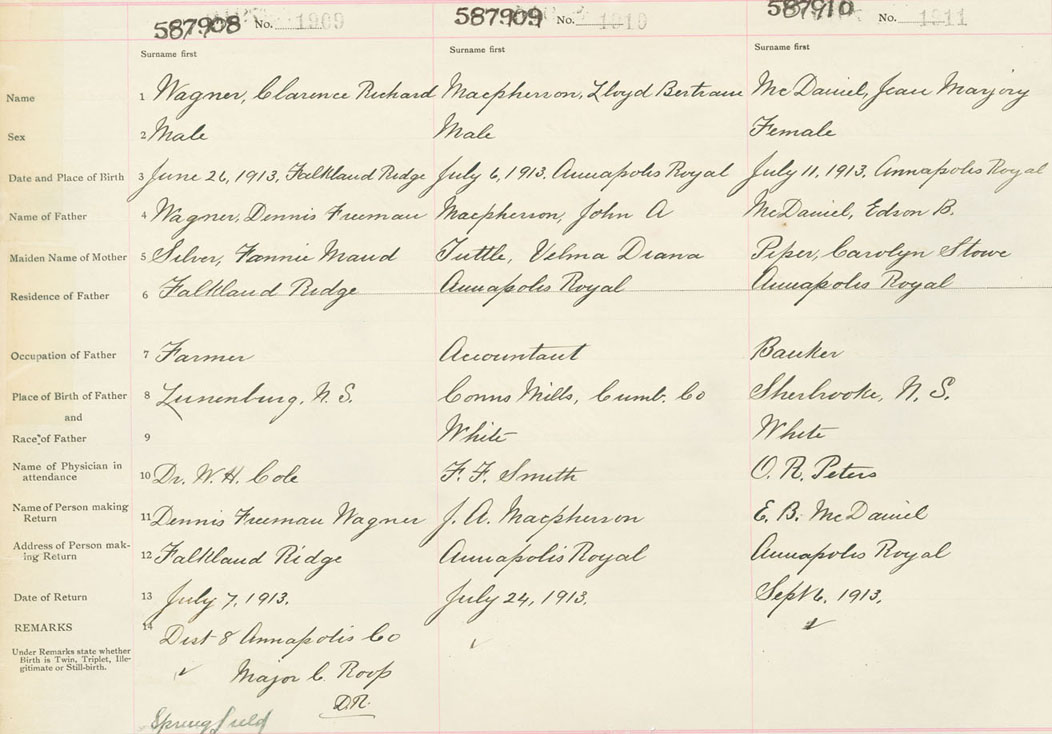 587908 No. 1909 587909 No. 1910 587910 No. 1911
Surname first Surname first Surname first
Name 1 Wagner, Clarence Richard Macpherson, Lloyd Bertram McDaniel, Jean Marjory
Sex 2 Male Male Female
Date and Place of Birth 3 June 26, 1913, Falkland Ridge July 6, 1913. Annapolis Royal July 11, 1913, Annapolis Royal
Name of Father 4 Wagner, Dennis Freeman Macpherson, John A McDaniel, Edson B.
Maiden Name of Mother 5 Silver, Fannie Maud Tuttle, Velma Diana Piper, Carolyn Stowe
Residence of Father 6 Falkland Ridge Annapolis Royal Annapolis Royal
Occupation of Father 7 Farmer Accountant Banker
Place of Birth of Father 8 Lunenburg, N.S. Conns Mills, Cumb. Co Sherbrooke, N.S.
and
Race of Father 9 White White
Name of Physician in attendance 10 Dr. W. H. Cole F. F. Smith O. R. Peters
Name of Person making Return 11 Dennis Freeman Wagner J. A. Macpherson E. B. McDaniel
Address of Person mak-
ing Return 12 Falkland Ridge Annapolis Royal Annapolis Royal
Date of Return 13 July 7, 1913. July 24, 1913. Sept 6, 1913.
REMARKS 14 Dist 8 Annapolis Co
Under Remarks state whether
Birth is Twin, Triplet, Ille-
gitimate or Still-birth.
Major C. Roop
D.R.
Springfield